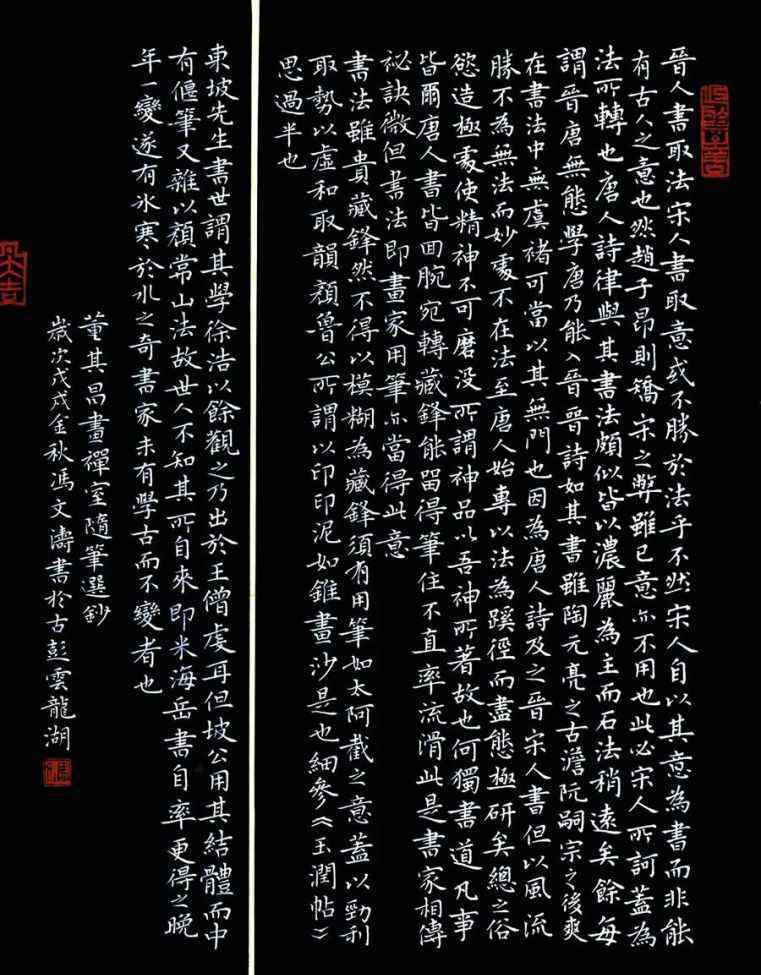 晉人書取法宋人書取意或不勝於法乎不然宋人自以其意為書而非能
有古人之意也然趙子昂則矯宋之弊雖己意亦不用也此必宋人所訶蓋為
法所轉也唐人詩律與其書法頗似皆以濃麗為主而石法稍遠矣餘每
謂晉唐無態學唐乃能入晉晉詩如其書雖陶元亮之古澹阮嗣宗之後爽
在書法中無虞褚可當以其無門也因為唐人詩及之晉宋人書但以風流
勝不為無法而妙處不在法至唐人始專以法為蹊徑而盡態極研矣總之俗
欲造極處使精神不可磨沒所謂神品以吾神所著故也何獨書道凡事
皆爾唐人書皆回腕宛轉藏鋒能留得筆住不直率流滑此是書家相傳
祕訣微但書法即畫家用筆亦當得此意
書法雖貴藏鋒然不得以模糊為藏鋒須有用筆如太阿截之意蓋以勁利
取勢以虛和取韻顏魯公所謂以印印泥如錐畫沙是也細參《玉潤帖》
思過半也
東坡先生書世謂其學徐浩以餘觀之乃出於王僧虔耳但坡公用其結體而中
有偃筆又雜以顏常山法故世人不知其所自來即米海岳書自率更得之晚
年一變遂有冰寒於水之奇書家未有學古而不變者也
董其昌畫禪室隨筆選鈔
歲次戊戌金秋馮文濤書於古彭雲龍湖